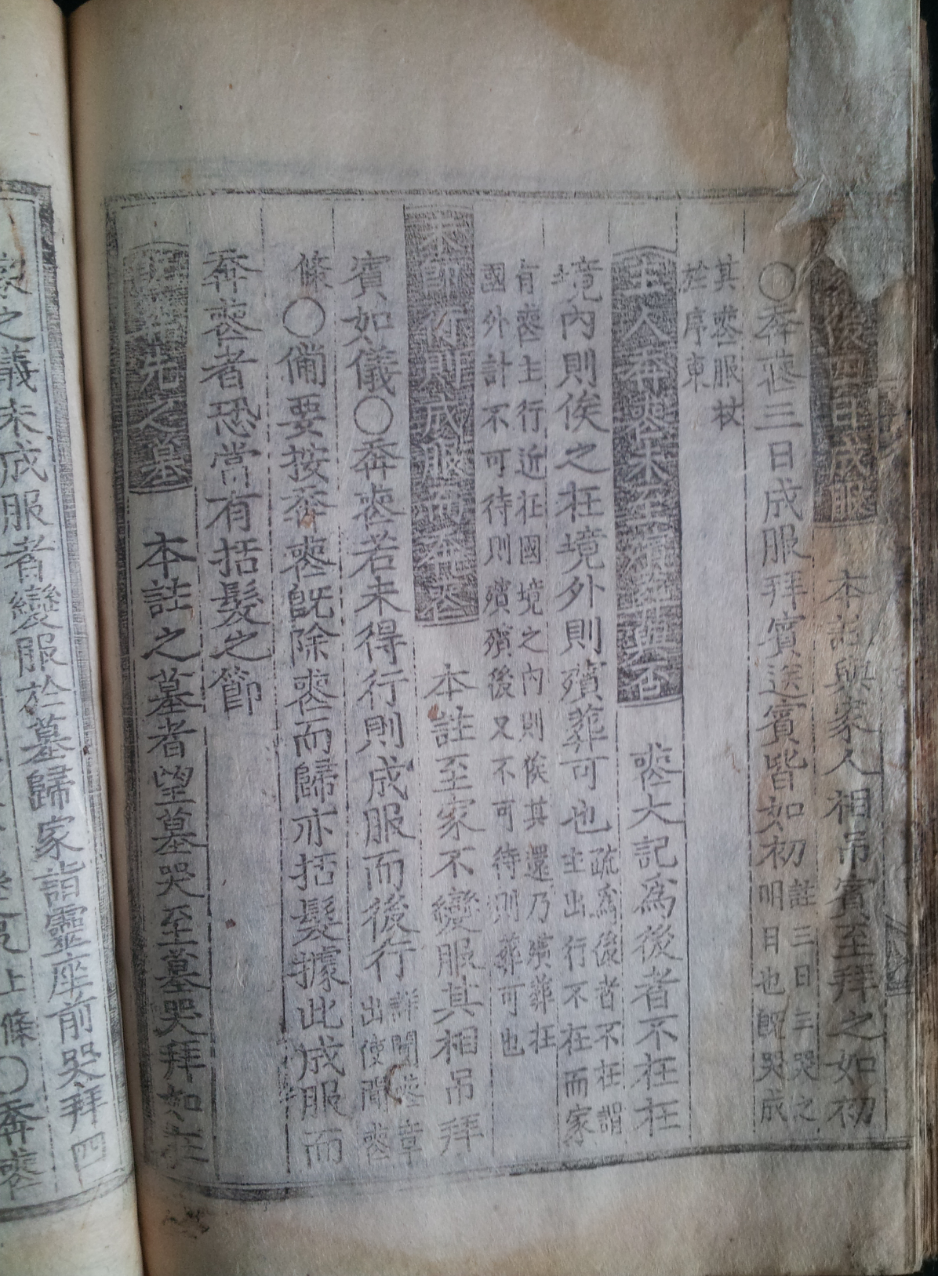 後四日成服 本註與家人相吊賓至拜之如初
○奔喪三日成服拜賓送賓皆如初 註三日三哭之
明日也旣哭成
其喪服杖
於序東
主人奔喪未至 殯葬與否 喪大記爲後者不在在
境內則俟之在境外則殯葬可也 疏爲後者不在謂
主出行不在而家
有喪主行近在國境之內則俟其還乃殯葬在
國外計不可待則殯殯後又不可待則葬可也
行則成服而 本註至家不變服其相吊拜
賓如儀○奔喪若未得行則成服而後行 詳聞喪章
出使聞喪
條○備要按奔喪旣除喪而歸亦括髮據此成服而
奔喪者恐當有括髮之節
先之墓 本註之墓者望墓哭至墓哭拜如在
之儀未成服者變服於墓歸家詣靈座前哭拜四
上條○奔喪